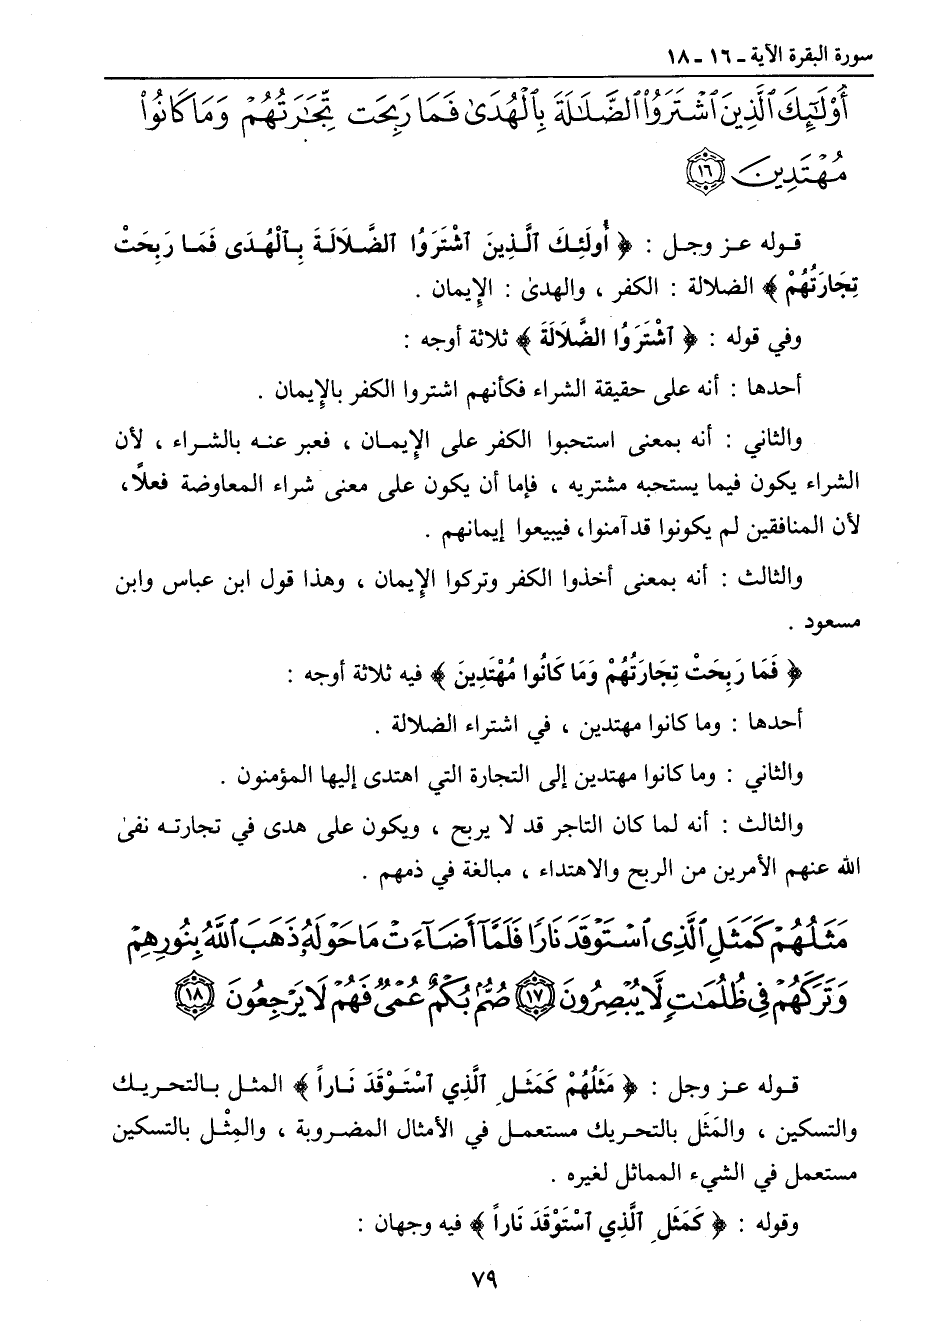 سورة البقرة الآية ـ ١٦ ـ ١٨
أُوْلَٰٓئِكَ ٱلَّذِينَ ٱشْتَرَوُاْ ٱلضَّلَٰلَةَ بِٱلْهُدَىٰ فَمَا رَبِحَت تِّجَٰرَتُهُمْ وَمَا كَانُواْ
مُهْتَدِينَ ١٦
قوله عز وجل : ﴿ أُولَئِكَ الَّذِينَ اشْتَرَوُا الضَّلَالَةَ بِالْهُدَى فَمَا رَبِحَتْ
تِجَارَتُهُمْ ﴾ الضلالة : الكفر ، والهدىٰ : الإِيمان .
وفي قوله : ﴿ اشْتَرَوُا الضَّلَالَةَ ﴾ ثلاثة أوجه :
أحدها : أنه على حقيقة الشراء فكأنهم اشتروا الكفر بالإِيمان .
والثاني : أنه بمعنى استحبوا الكفر على الإِيمان ، فعبر عنه بالشراء ، لأن
الشراء يكون فيما يستحبه مشتريه ، فإما أن يكون على معنى شراء المعاوضة فعلاً،
لأن المنافقين لم يكونوا قد آمنوا، فيبيعوا إيمانهم .
والثالث : أنه بمعنى أخذوا الكفر وتركوا الإِيمان ، وهذا قول ابن عباس وابن
مسعود .
﴿ فَمَا رَبِحَتْ تِجَارَتُهُمْ وَمَا كَانُوا مُهْتَدِينَ ﴾ فيه ثلاثة أوجه :
أحدها : وما كانوا مهتدين ، في اشتراء الضلالة .
والثاني : وما كانوا مهتدين إلى التجارة التي اهتدى إليها المؤمنون .
والثالث : أنه لما كان التاجر قد لا يربح ، ويكون على هدى في تجارته نفىٰ
الله عنهم الأمرين من الربح والاهتداء ، مبالغة في ذمهم .
مَثَلُهُمْ كَمَثَلِ ٱلَّذِى ٱسْتَوْقَدَ نَارًا فَلَمَّآ أَضَآءَتْ مَا حَوْلَهُۥ ذَهَبَ ٱللَّهُ بِنُورِهِمْ
وَتَرَكَهُمْ فِى ظُلُمَٰتٍ لَّا يُبْصِرُونَ ١٧ صُمٌّۢ بُكْمٌ عُمْىٌ فَهُمْ لَا يَرْجِعُونَ ١٨
قوله عز وجل : ﴿ مَثَلُهُمْ كَمَثَلِ الَّذِي اسْتَوْقَدَ نَاراً ﴾ المثل بالتحريك
والتسكين ، والمَثَل بالتحريك مستعمل في الأمثال المضروبة ، والمِثْل بالتسكين
مستعمل في الشيء المماثل لغيره .
وقوله : ﴿ كَمَثَلِ الَّذِي اسْتَوْقَدَ نَاراً ﴾ فيه وجهان :
٧٩